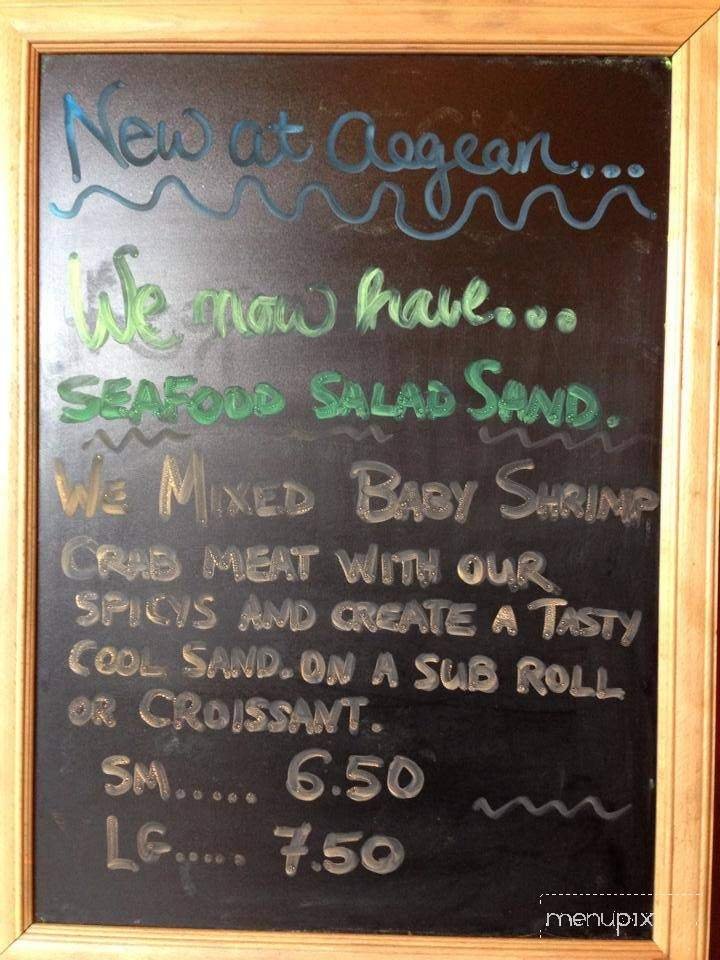 New at Aegean...
We now have...
SEAFOOD SALAD SAND.
WE MIXED BABY SHRIMP
CRAB MEAT WITH OUR
SPICYS AND CREATE A TASTY
COOL SAND. ON A SUB ROLL
OR CROISSANT.
SM..... 6.50
LG..... 7.50
menupix